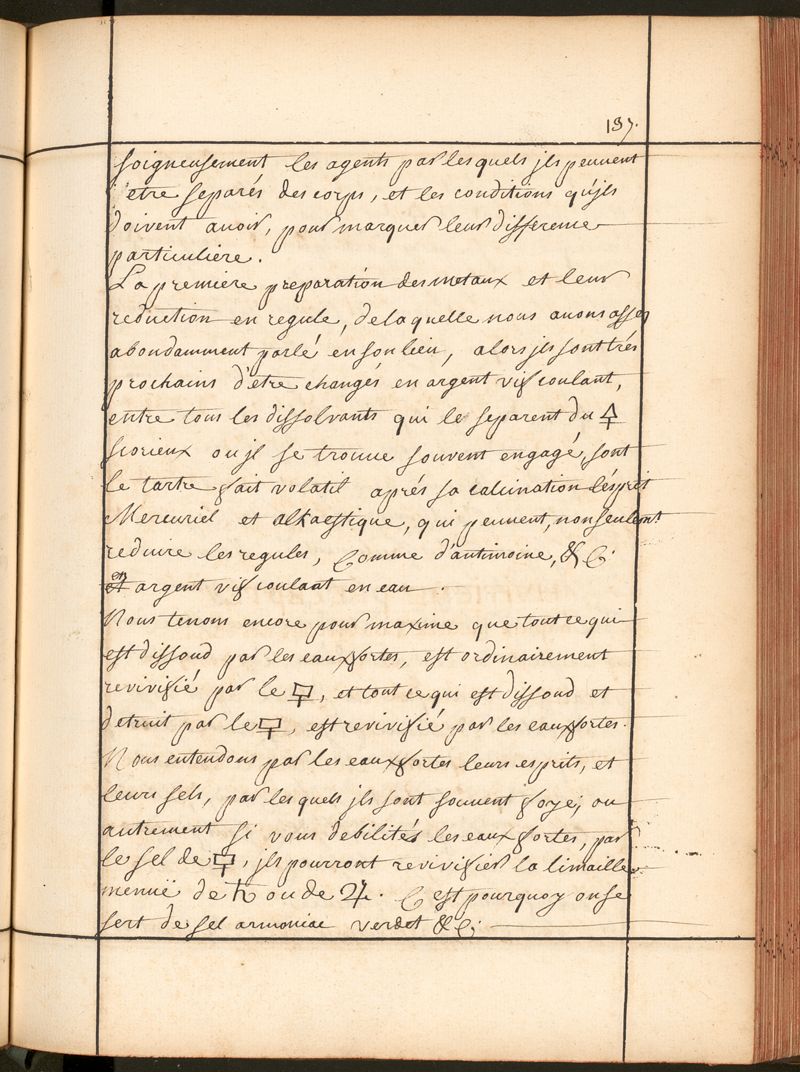 197.
soigneusement les agents par lesquels jls peuvent
etre separés des corps, et les conditions qu'jls
doivent avoir, pour marquer leur difference
particuliere.
La premiere preparation des metaux et leur
reduction en regule, de laquelle nous auons assez
abondamment parlé en son lieu, alors jls sont trés
prochains d'etre changés en argent vif coulant,
entre tous les dissolvants qui le separent du 🜍
scorieux ou jl se trouue souvent engagé, sont
le tartre fait volatil aprés sa calcination l'ésprit
Mercuriel et alkaestique, qui peuvent, non seulemt.
reduire les regules, Comme d'antimoine, &C.
en argent vif coulant en eau.
Nous tenons encore pour maxime que tout ce qui
est dissoud par les eaux fortes, est ordinairement
revivifié par le 🜿, et tout ce qui est dissoud et
detruit par le 🜿, est revivifié par les eaux fortes.
Nous entendons par les eaux fortes leurs esprits, et
leurs sels, par lesquels jls sont souvent
autrement si vous debilités les eaux fortes, par
le sel de 🜿, jls pourront revivifier la limaille
menuë de ♄ ou de ♃. C'est pourquoy on se
sert de sel armoniac verdet &C.